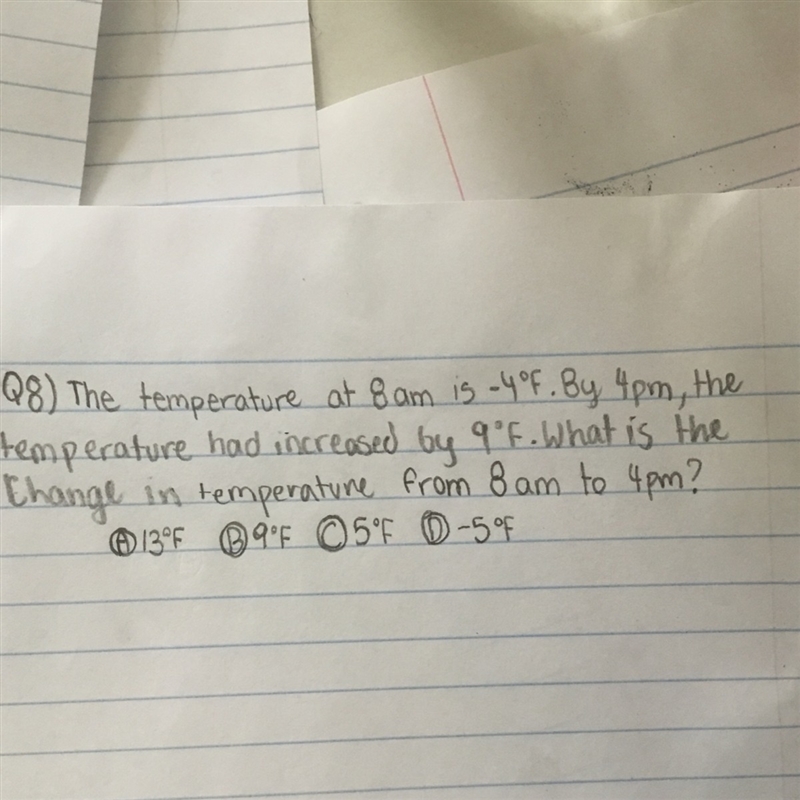 Q8) The temperature at 8am is -4°F. By 4pm, the
temperature had increased by 9°F. What is the
Change in temperature from 8am to 4pm?
Ⓐ 13°F Ⓑ 9°F Ⓒ 5°F Ⓓ -5°F